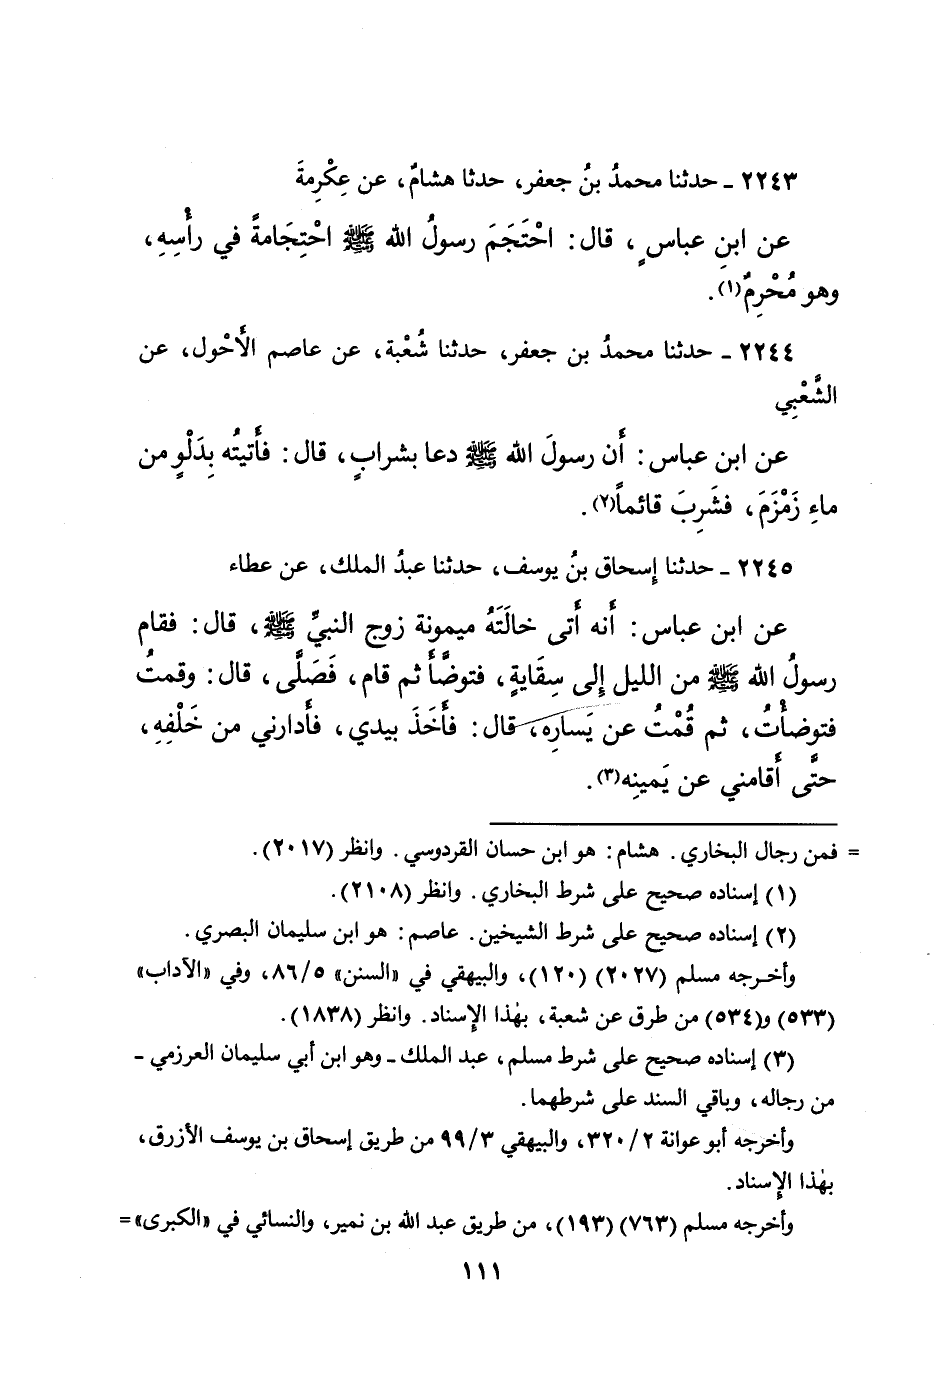 ٢٢٤٣ ـ حدثنا محمدُ بنُ جعفر، حدثا هشامٌ، عن عِكْرِمةَ
عن ابنِ عباسٍ، قال: احْتَجَمَ رسولُ الله ﷺ احْتِجَامةً في رأْسِهِ،
وهو مُحْرِمٌ(١).
٢٢٤٤ ـ حدثنا محمدُ بن جعفر، حدثنا شُعْبة، عن عاصم الأَحْول، عن
الشَّعْبِي
عن ابن عباس: أَن رسولَ الله ﷺ دعا بشرابٍ، قال: فأَتيتُه بِدَلْوٍ من
ماءِ زَمْزَمَ، فشَرِبَ قائماً(٢).
٢٢٤٥ ـ حدثنا إِسحاق بنُ يوسف، حدثنا عبدُ الملك، عن عطاء
عن ابن عباس: أَنه أَتى خالَتَهُ ميمونة زوج النبيِّ ﷺ، قال: فقام
رسولُ الله ﷺ من الليل إِلى سِقَايةٍ، فتوضَّأَ ثم قام، فَصَلَّى، قال: وقمتُ
فتوضأْتُ، ثم قُمْتُ عن يَسارِه، قال: فأَخَذَ بيدي، فأَدارني من خَلْفِهِ،
حتَّى أَقامني عن يَمينِه(٣).
= فمن رجال البخاري. هشام: هو ابن حسان القردوسي. وانظر (٢٠١٧).
(١) إسناده صحيح على شرط البخاري. وانظر (٢١٠٨).
(٢) إسناده صحيح على شرط الشيخين. عاصم: هو ابن سليمان البصري.
وأخرجه مسلم (٢٠٢٧) (١٢٠)، والبيهقي في «السنن» ٨٦/٥، وفي «الآداب»
(٥٣٣) و(٥٣٤) من طرق عن شعبة، بهٰذا الإِسناد. وانظر (١٨٣٨).
(٣) إسناده صحيح على شرط مسلم، عبد الملك ـ وهو ابن أبي سليمان العرزمي ـ
من رجاله، وباقي السند على شرطهما.
وأخرجه أبو عوانة ٣٢٠/٢، والبيهقي ٩٩/٣ من طريق إسحاق بن يوسف الأزرق،
بهٰذا الإِسناد.
وأخرجه مسلم (٧٦٣) (١٩٣)، من طريق عبد الله بن نمير، والنسائي في «الكبرى»=
١١١